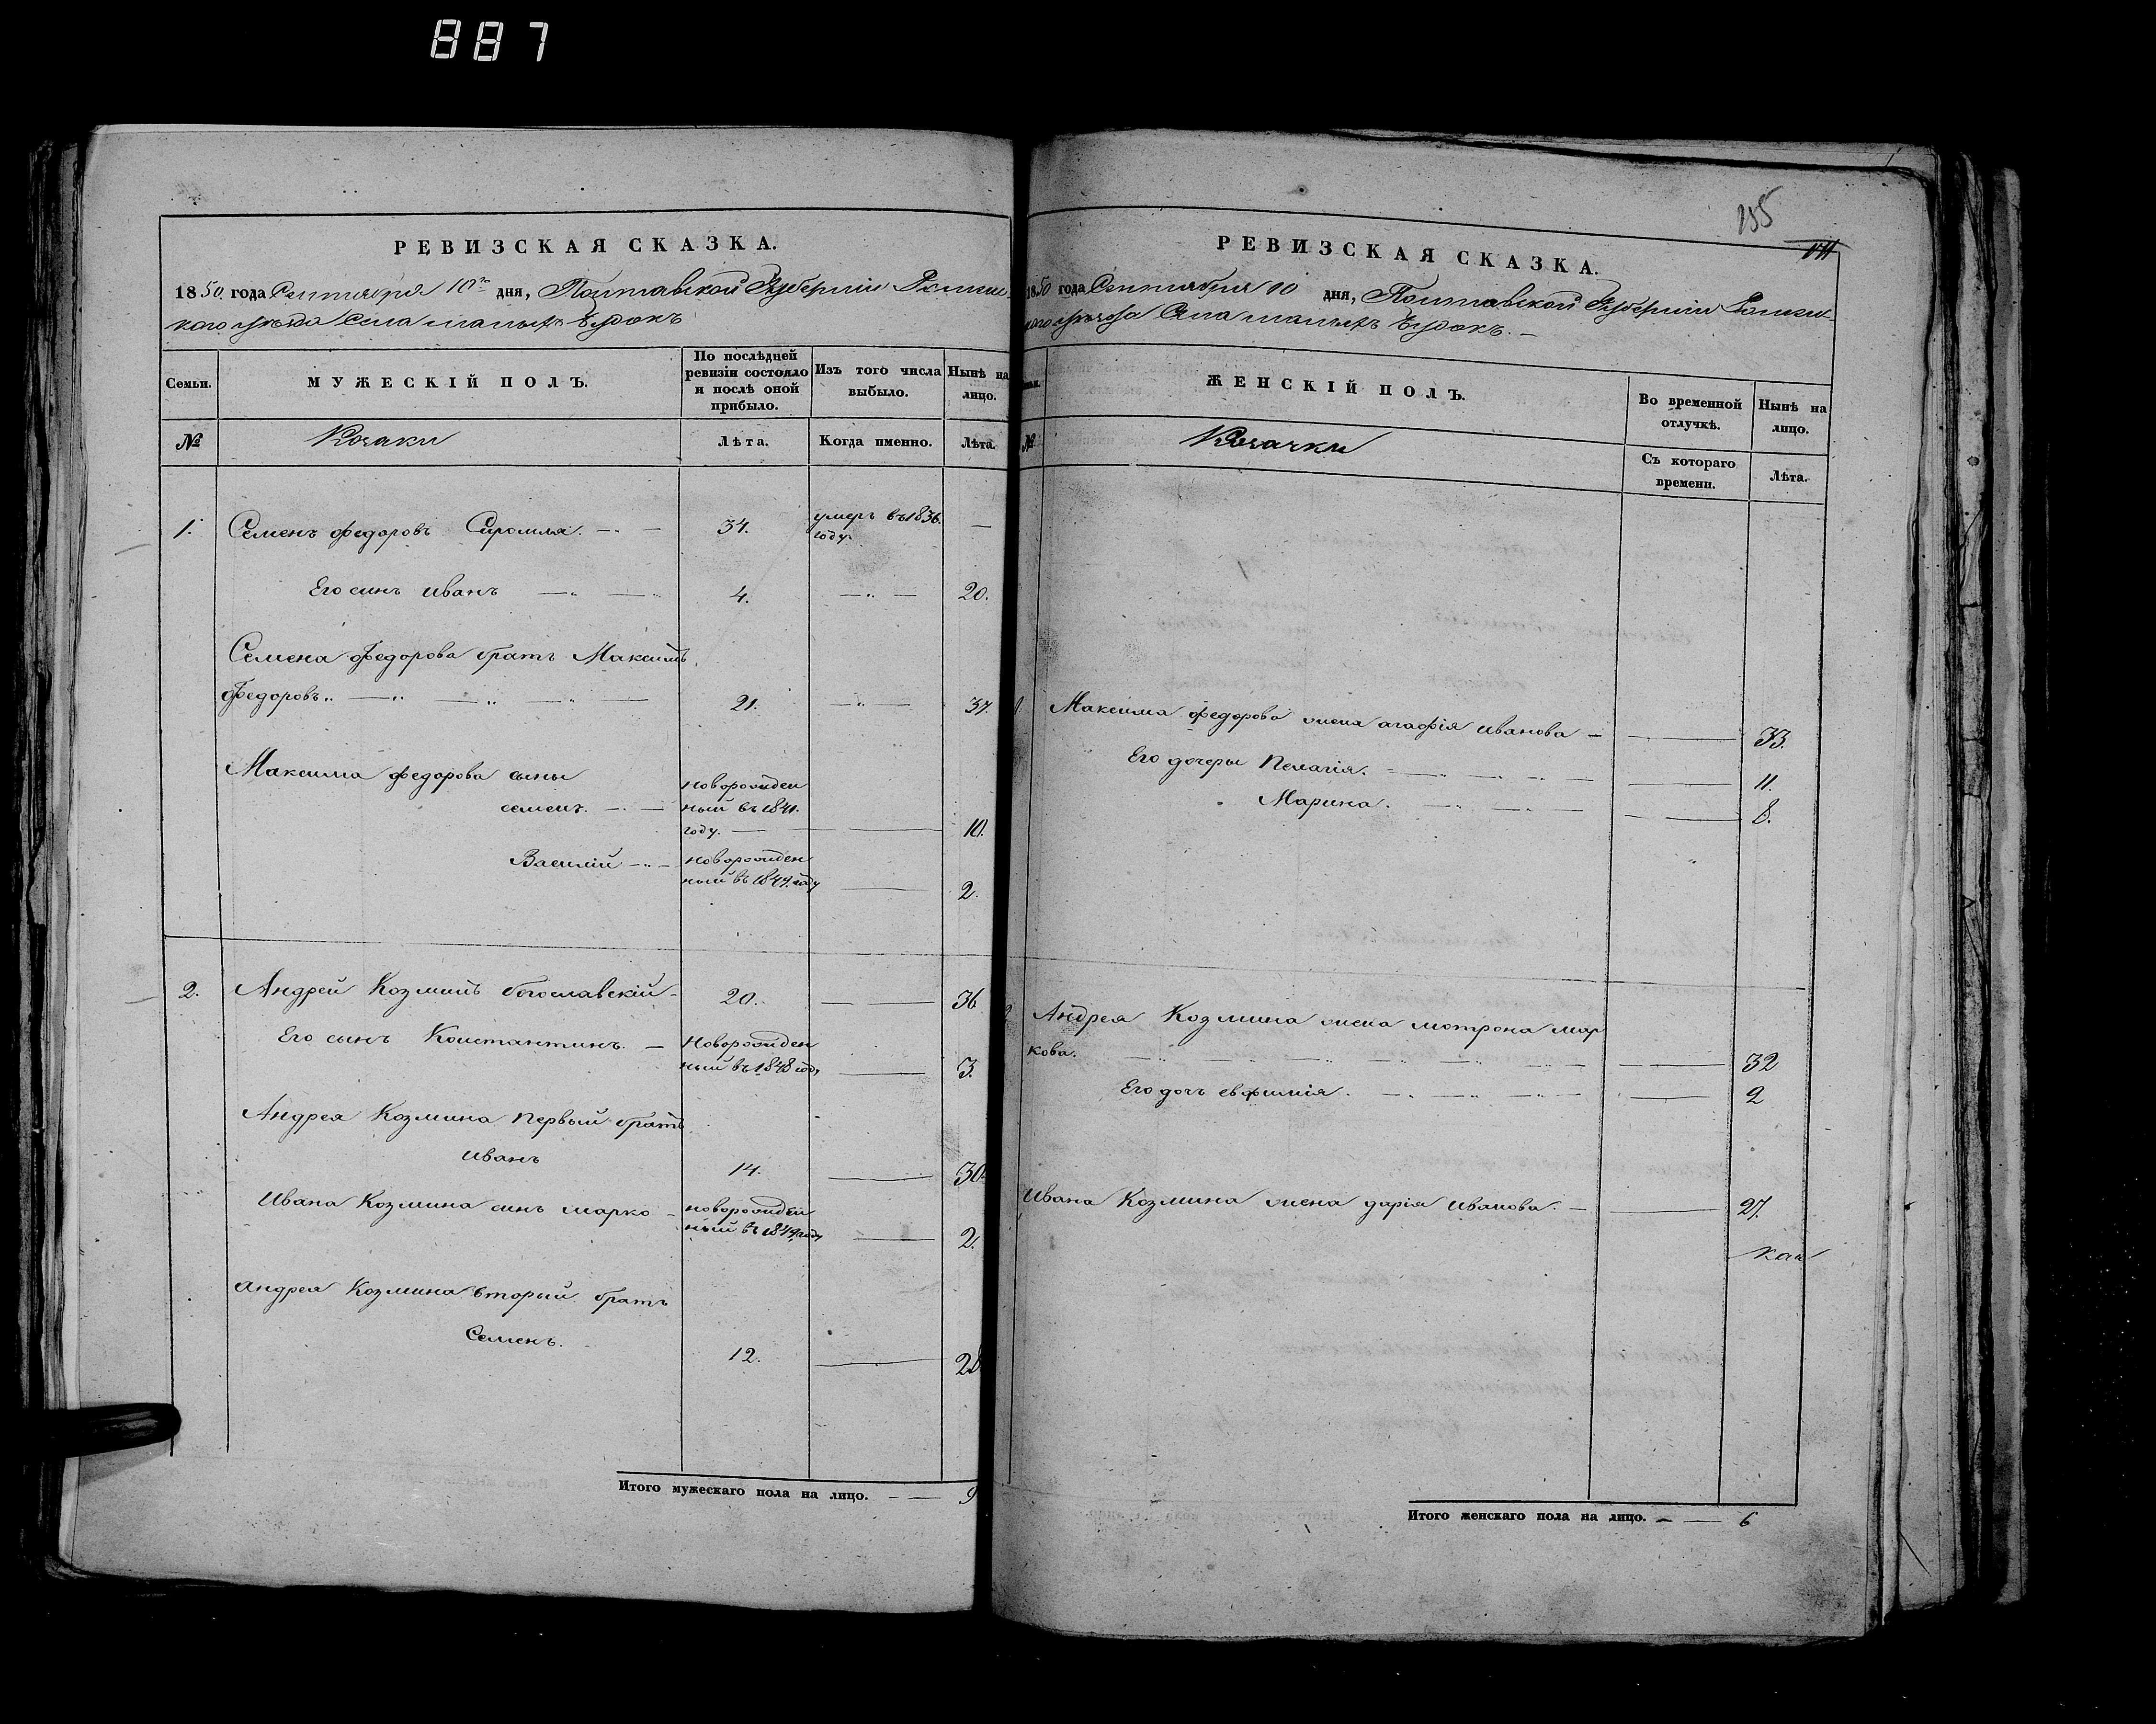 887
РЕВИЗСКАЯ СКАЗКА.
1850 года Сентября 10го дня, Полтавской Губернии
кого уѣзда Села малыхъ Будокъ
Семьи.
МУЖЕСКІЙ ПОЛЪ.
По послѣдней ревизіи состояло и послѣ оной прибыло.
Изъ того числа выбыло.
Нынѣ на лицо.
№
Козаки
Лѣта.
Когда именно.
Лѣта.
1. Семенъ федоровъ 34. умеръ въ 1836. —
году.
Его синъ иванъ 4. — 20.
Семена Федорова братъ Максимъ
Федоровъ 21. — 37.
Максима федорова сыны
семенъ. новорожден
ный въ 1841.
году. — 10.
Василій новорожден
ный въ 1849. году — 2.
2. Андрей Козминъ богославскій 20. — 36
Его сынъ Константинъ. новорожден
ный въ 1848 году — 3.
Андрея Козмина первый братъ
иванъ 14. — 30.
Ивана Козмина синъ марко новорожден
ный въ 1849 году — 2.
андрея Козмина вторый братъ
Семенъ. 12. — 28
Итого мужескаго пола на лицо. — 9
155
РЕВИЗСКАЯ СКАЗКА.
1850 года Сентября 10 дня, Полтавской Губерніи
кого уѣзда Села малыхъ Будокъ. —
ЖЕНСКІЙ ПОЛЪ.
Во временной отлучкѣ.
Нынѣ на лицо.
№
Козачки
Съ котораго времени.
Лѣта.
1. Максима федорова жена агафія иванова — 33.
Его дочеры Пелагія. — 11.
Марина. — 8.
2 Андрея Козмина жена мотрона мар
кова. — 32
Его дочъ евфимія. — 2
Ивана Козмина жена дарія иванова. — 27.
Итого женскаго пола на лицо. — 6